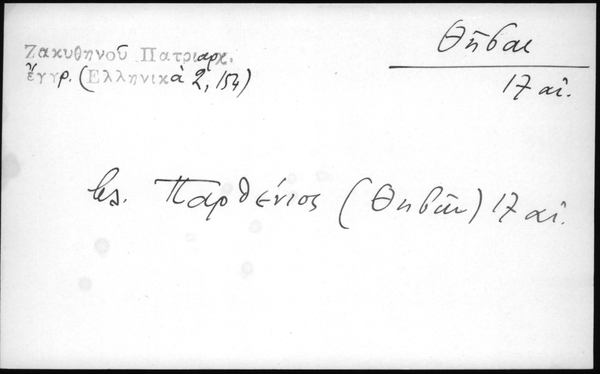 Ζακυθηνοῦ Πατριαρχ.
ἔγγρ. (Ἑλληνικὰ 2, 154)
Θῆβαι
17 αἰ.
βλ. Παρθένιος (Θηβῶν) 17 αἰ.